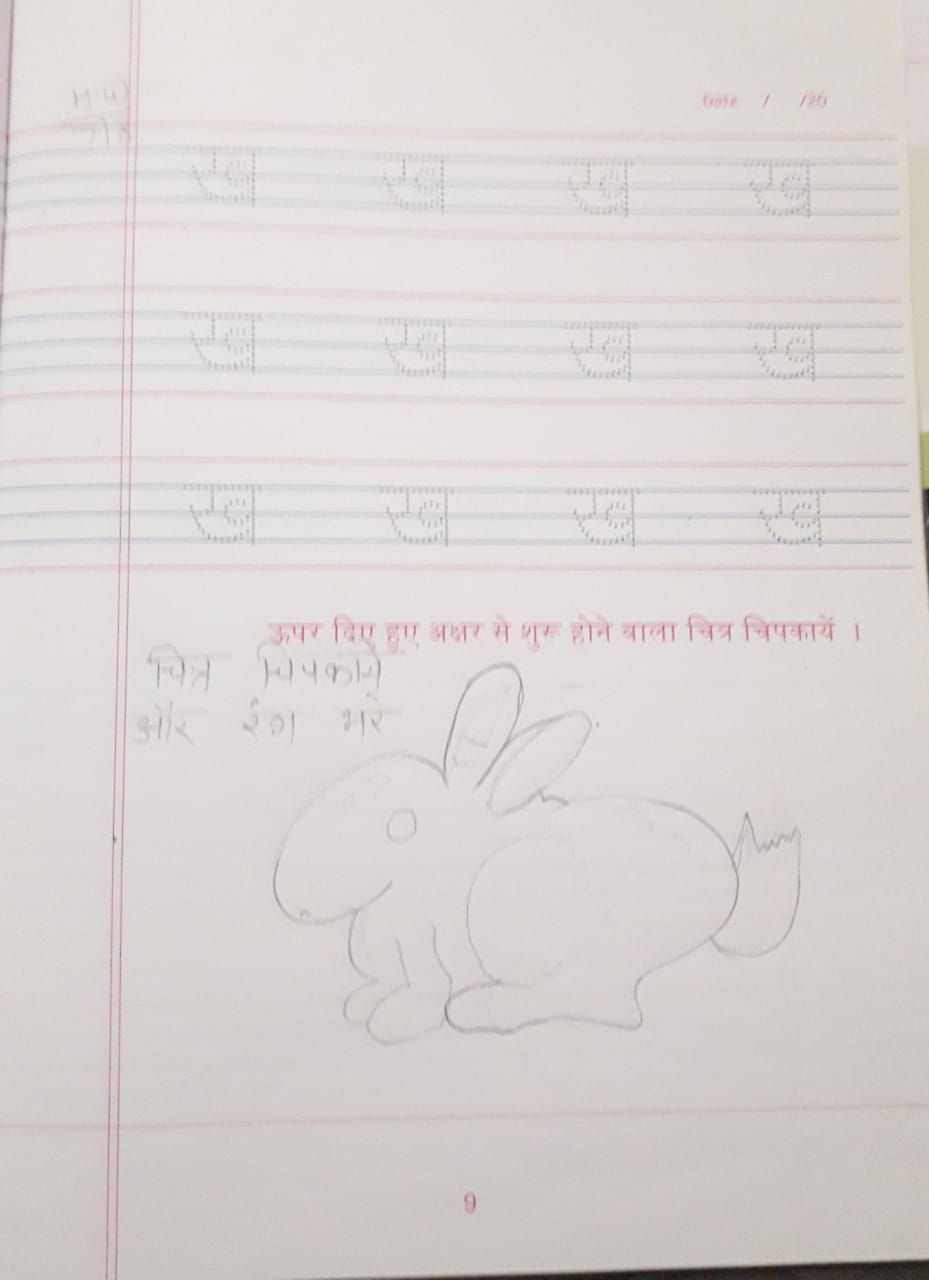 H.W
Date / /20
ख ख ख ख
ख ख ख ख
ख ख ख ख
ऊपर दिए हुए अक्षर से शुरू होने वाला चित्र चिपकायें ।
चित्र चिपकाये
और रंग भरे
9